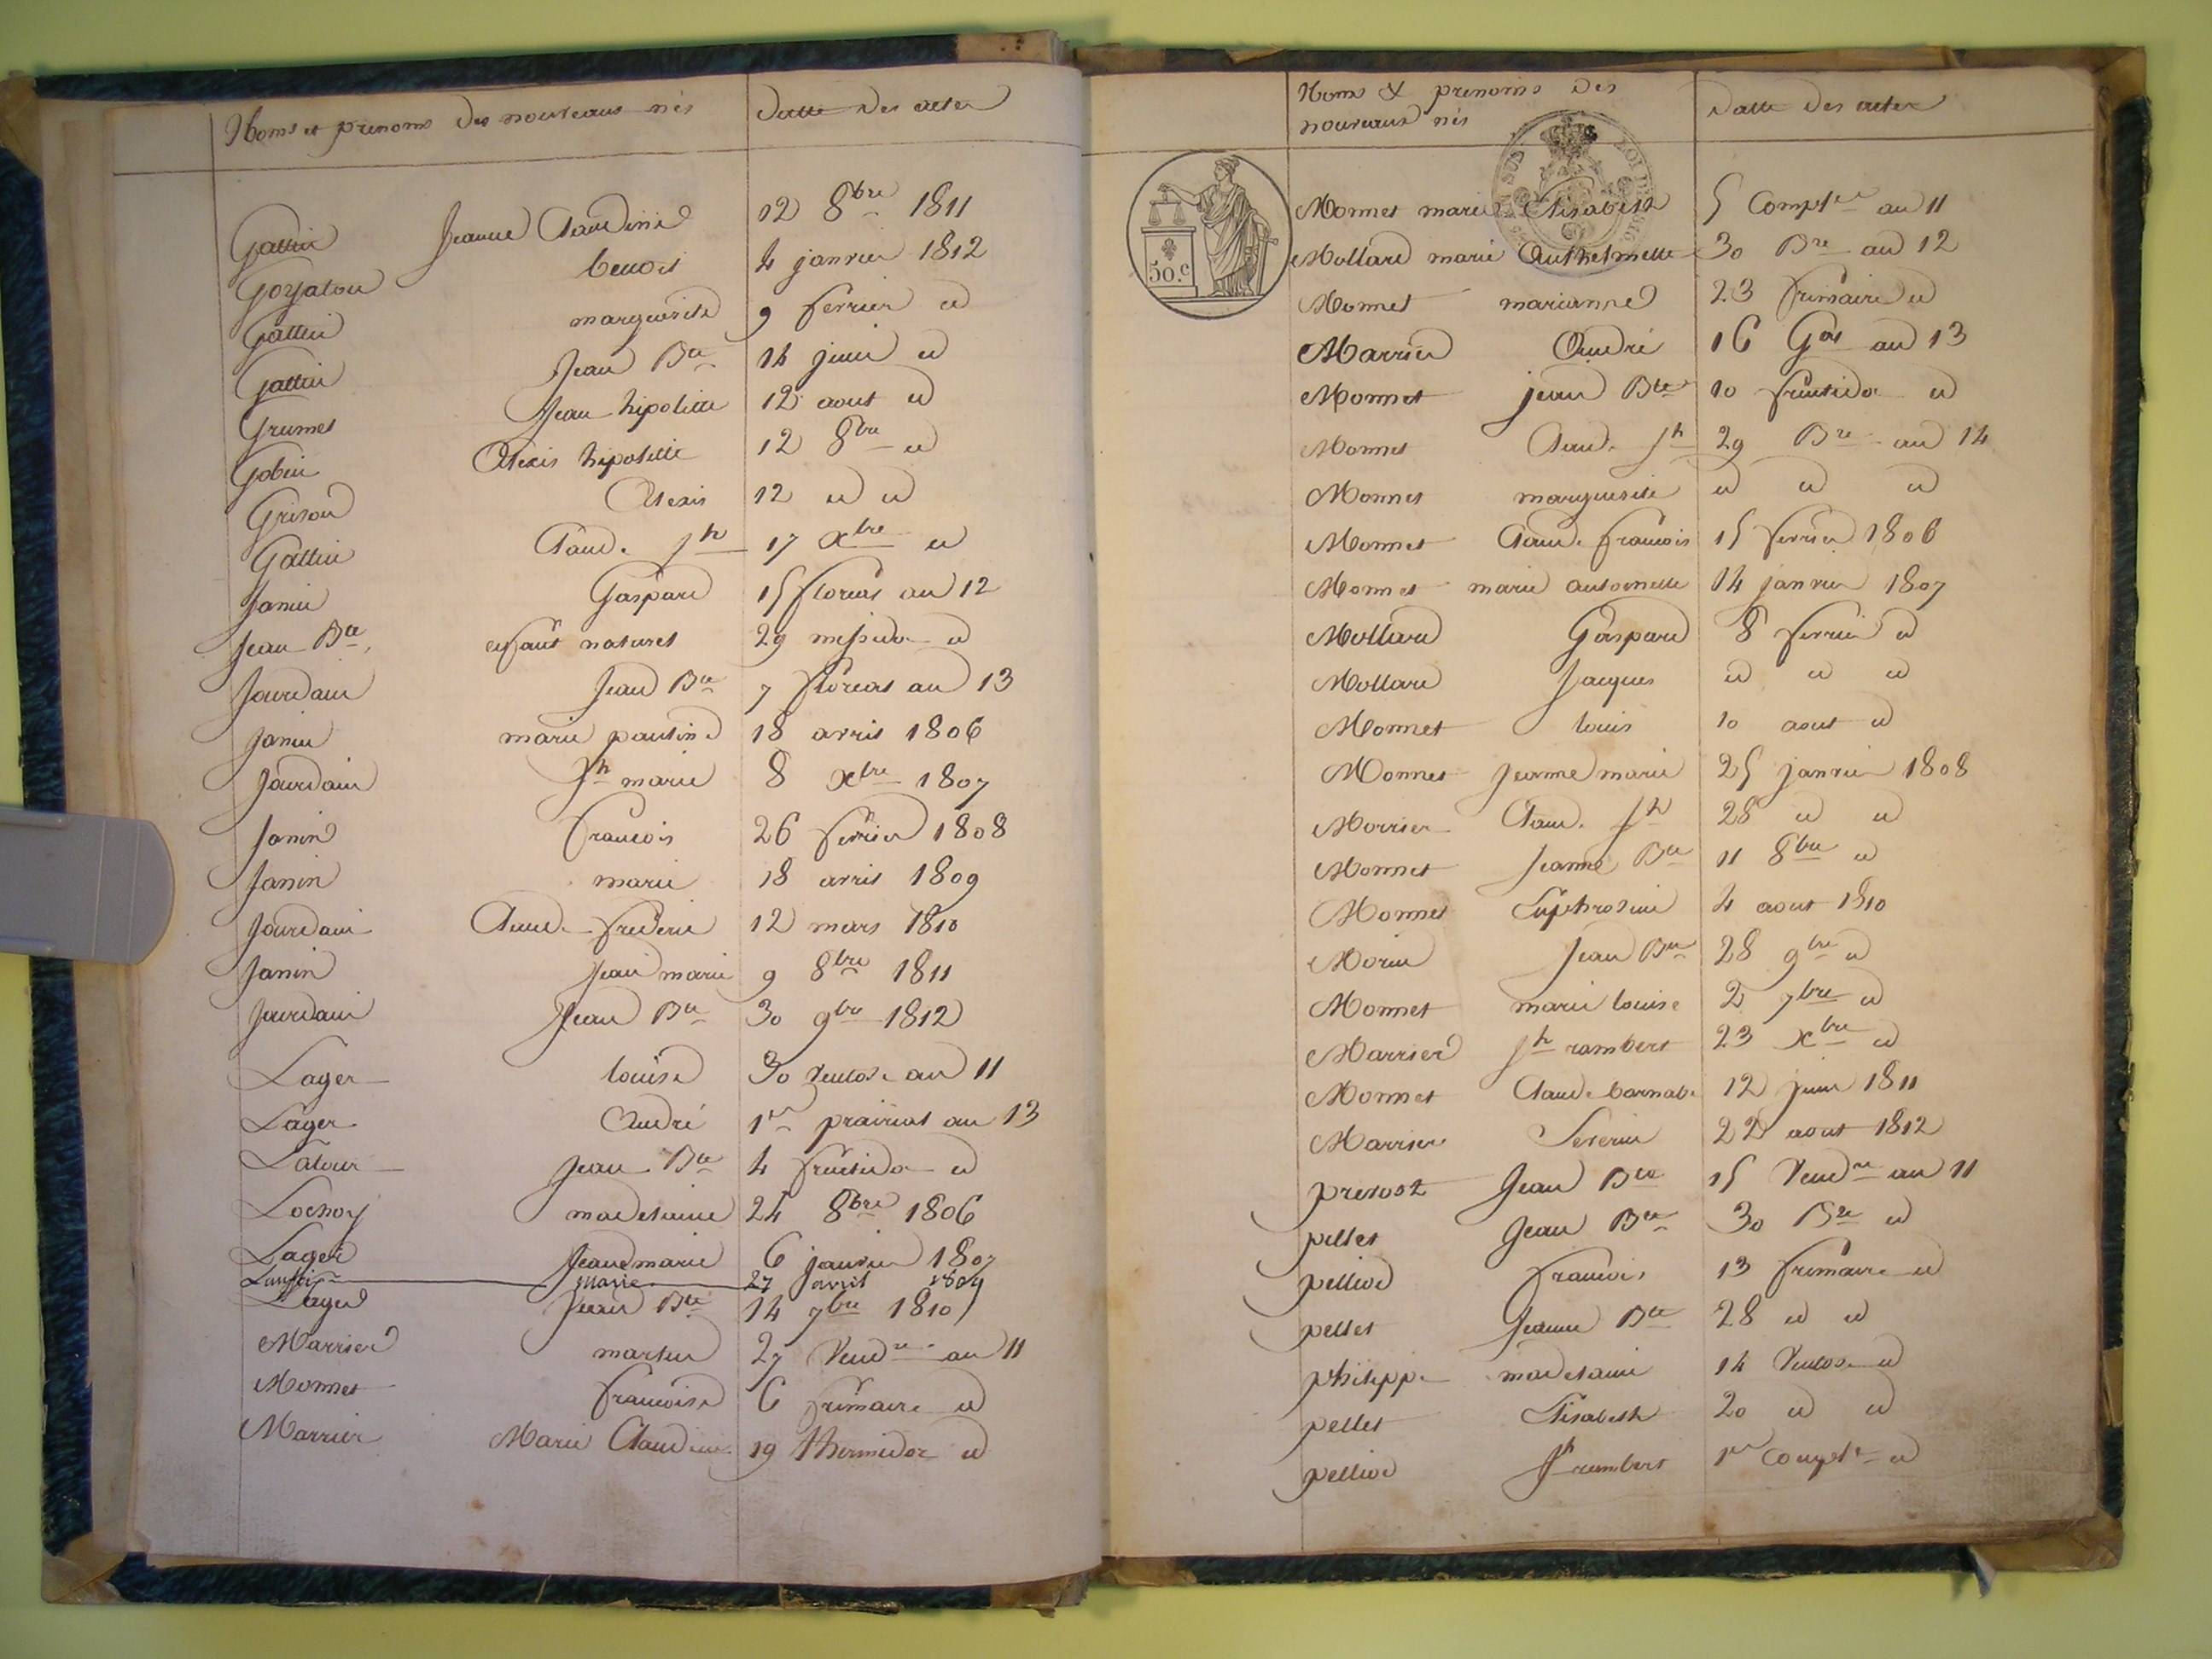 Noms et prenoms des nouveaux nés Datte des actes
Gattin Jeanne Claudine 12 8bre 1811
Goyatou benoit 4 janvier 1812
Gattin marguerite 9 fevrier id
Gattin Jean Bte 14 juin id
Grumet Jean hipolitte 12 aout id
Gobin Alexis hipolitte 12 8bre id
Grison Alexis 12 id id
Gattin Claude Jh 17 Xbre id
Janin Gaspard 15 floréal an 12
Jean Bte, enfant naturel 29 messidor id
Jourdain Jean Bte 7 floréal an 13
Janin marie pauline 18 avril 1806
Jourdain Jh marie 8 Xbre 1807
Janin francois 26 fevrier 1808
Janin marie 18 avril 1809
Jourdain Claude frederic 12 mars 1810
Janin Jean marie 9 8bre 1811
Jourdain Jean Bte 30 9bre 1812
Lager louise 30 Ventose an 11
Lager André 1er prairial an 13
Latour Jean Bte 4 fructidor id
Lochoy madelaine 24 8bre 1806
Lager Jeanne marie 6 janvier 1807
Marie 27 avril 1809
Lager Jean Bte 14 7bre 1810
Marrier martin 27 Vendre an 11
Monnet francoise 6 frimaire id
Marrier Marie Claudine 19 thermidor id
Noms & prenoms des nouveaux nés Datte des actes
50.c
Monnet marie Elisabeth 5 Complre an 11
Mollard marie Anthelmette 30 Bre an 12
Monnet marianne 23 frimaire id
Marrier André 16 Gal an 13
Monnet jean Bte 10 fructidor id
Monnet Claude Jh 29 Bre an 14
Monnet marguerite id id id
Monnet Claude francois 15 fevrier 1806
Monnet marie antoinette 14 janvier 1807
Mollard Gaspard 8 fevrier id
Mollard Jacques id id id
Monnet louis 10 aout id
Monnet Jeanne marie 25 janvier 1808
Morrier Claude Jh 28 id id
Monnet Jeanne Bte 11 8bre id
Monnet Euphrosine 4 aout 1810
Morin Jean Bte 28 9bre id
Monnet marie louise 2 7bre id
Marrier Jh rambert 23 Xbre id
Monnet Claude barnabe 12 juin 1811
Marrier Severin 22 aout 1812
prevost Jean Bte 15 Vendre an 11
pellet Jean Bte 30 Bre id
pelliod francois 13 frimaire id
pellet Jeanne Bte 28 id id
philippe madelaine 14 Ventose id
pellet Elisabeth 20 id id
pelliod Jh rambert 1er Complre id